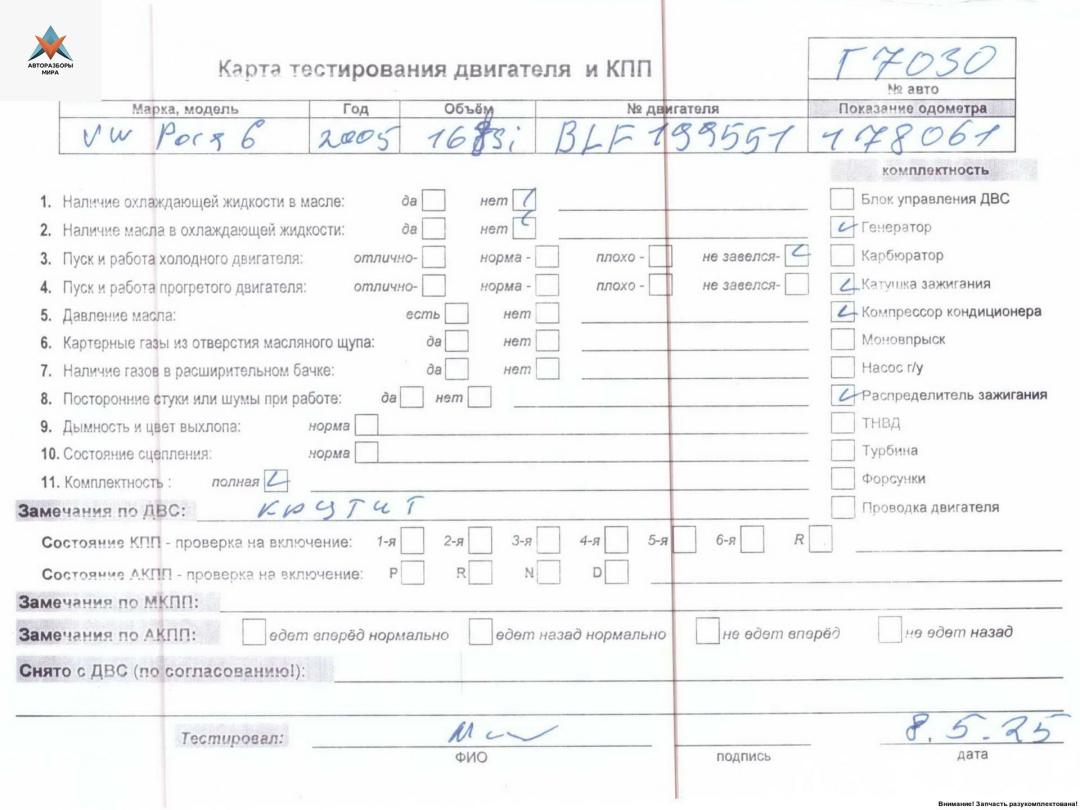 АВТОРАЗБОРЫ
МИРА
Карта тестирования двигателя и КПП
Г7030
№ авто
Марка, модель Год Объём № двигателя Показание одометра
VW Polo 6 2005 16 FSi BLF199551 178061
комплектность
1. Наличие охлаждающей жидкости в масле: да нет
Блок управления ДВС
2. Наличие масла в охлаждающей жидкости: да нет
Генератор
3. Пуск и работа холодного двигателя: отлично- норма - плохо - не завелся-
Карбюратор
4. Пуск и работа прогретого двигателя: отлично- норма - плохо - не завелся-
Катушка зажигания
5. Давление масла: есть нет
Компрессор кондиционера
6. Картерные газы из отверстия масляного щупа: да нет
Моновпрыск
7. Наличие газов в расширительном бачке: да нет
Насос г/у
8. Посторонние стуки или шумы при работе: да нет
Распределитель зажигания
9. Дымность и цвет выхлопа: норма
ТНВД
10. Состояние сцепления: норма
Турбина
11. Комплектность : полная
Форсунки
Замечания по ДВС: крутит
Проводка двигателя
Состояние КПП - проверка на включение: 1-я 2-я 3-я 4-я 5-я 6-я R
Состояние АКПП - проверка на включение: P R N D
Замечания по МКПП:
Замечания по АКПП: едет вперёд нормально едет назад нормально не едет вперёд не едет назад
Снято с ДВС (по согласованию!):
Тестировал:
8.5.25
ФИО подпись дата
Внимание! Запчасть разукомплектована!